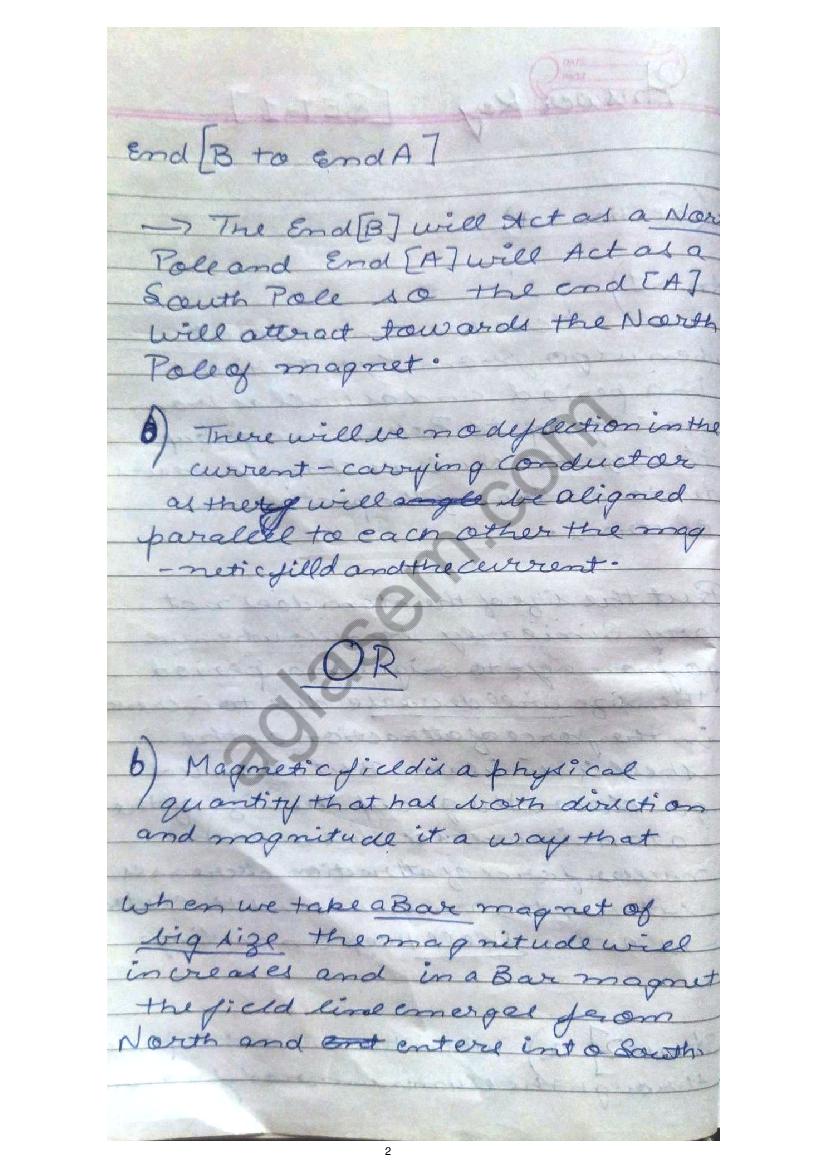 End [B to End A]
→ The End [B] will Act as a Nor
Pole and End [A] will Act as a
South Pole so the end [A]
will attract towards the North
Pole of magnet.
b) There will be no deflection in the
current-carrying conductor
as they will be aligned
parallel to each other the mag
-netic filld and the current.
OR
b) Magnetic field is a physical
quantity that has both direction
and magnitude it a way that
when we take a Bar magnet of
big size the magnitude will
increases and in a Bar magnet
the field line emerges from
North and enters into South.
aglasem.com
2